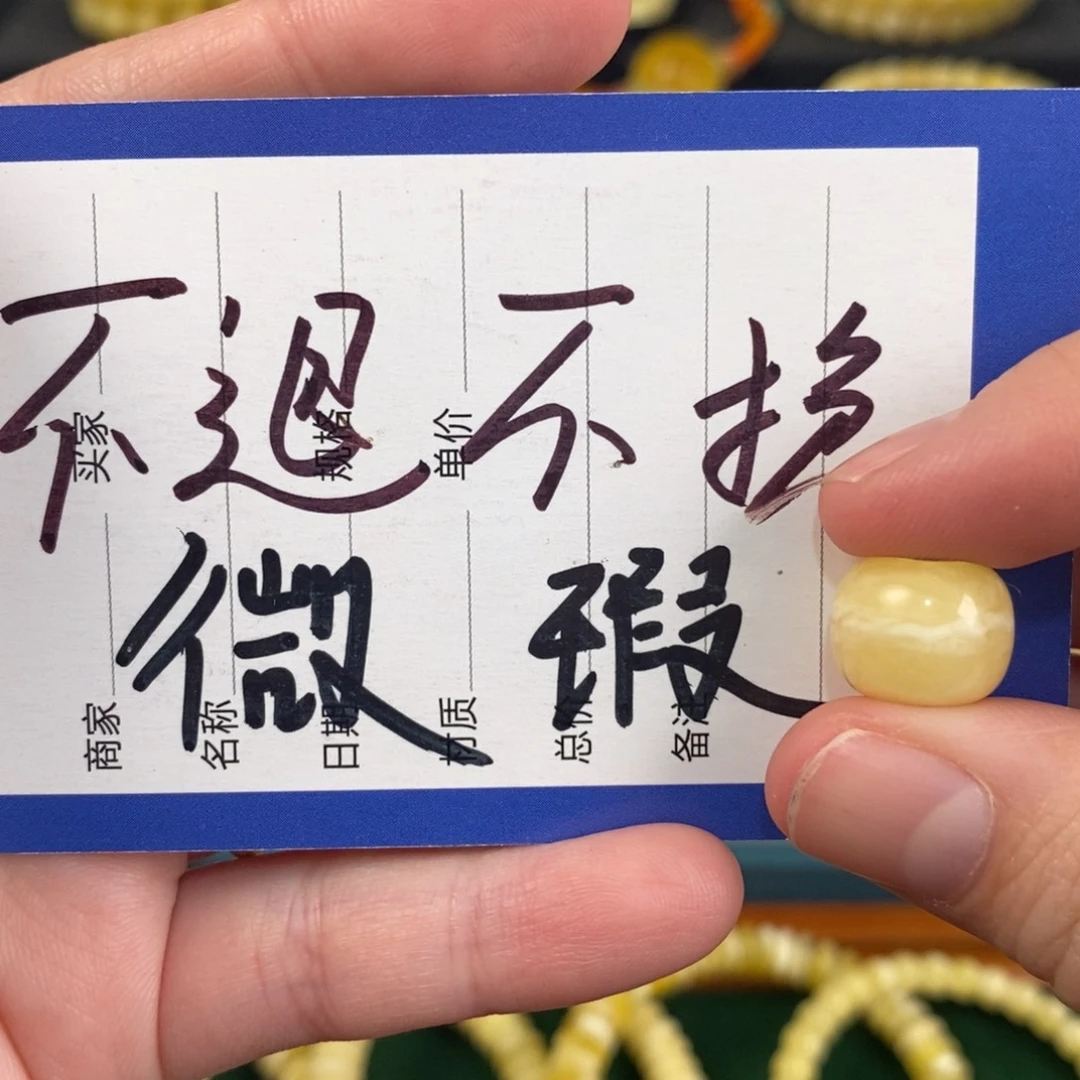 不退不换
微瑕
买家
规格
单价
商家
名称
日期
材质
总价
备注